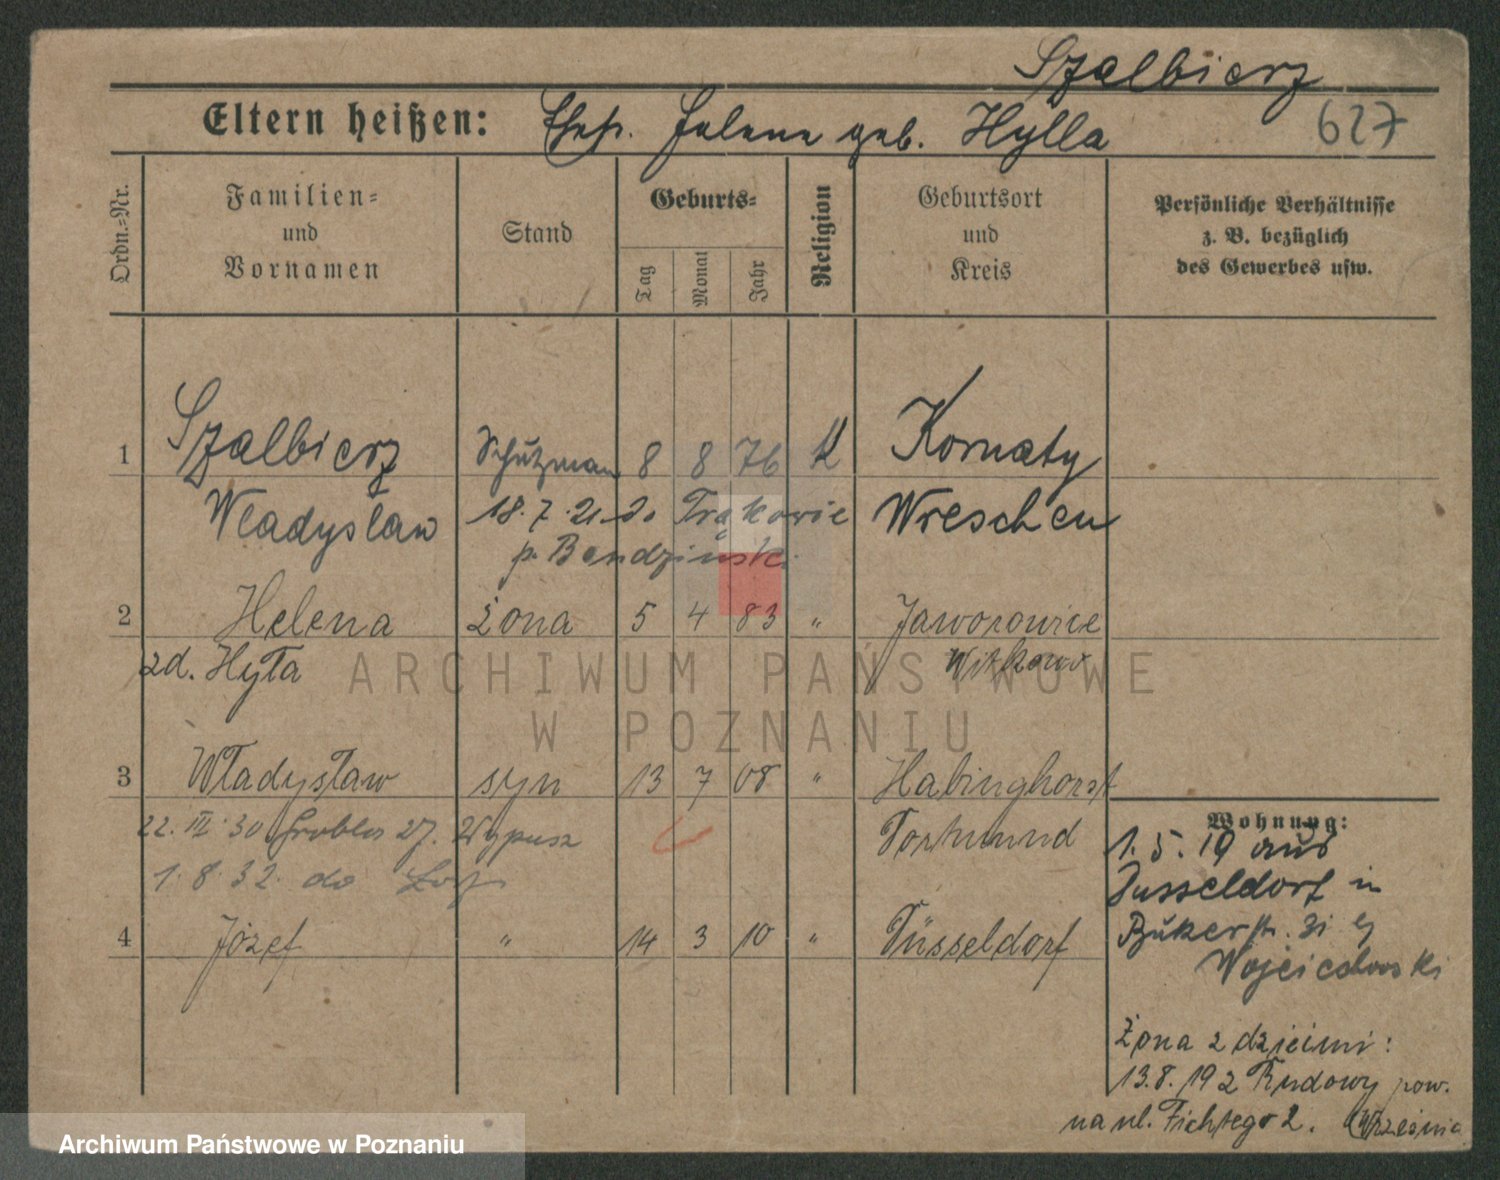 Szalbierz
Eltern heißen: Ehefr. Helene geb. Hylla
627
Ordn.-Nr.
Familien- und Vornamen
Stand
Geburts-
Tag
Monat
Jahr
Religion
Geburtsort und Kreis
Persönliche Verhältnisse
z. B. bezüglich
des Gewerbes usw.
1 Szalbierz Schutzman 8 8 76 K Kornaty
Władysław 18.7.21 do Wreschen
p. Bendziński
2 Helena żona 5 4 83 " Jaworowice
zd. Hyła Witkowo
3 Władysław syn 13 7 08 " Habinghorst
22. 30 Grobla 27. Dortmund
1.8.32. do
4 Józef " 14 3 10 " Düsseldorf
Wohnung:
1.5.19 aus
Düsseldorf in
Bukerstr. 31 bj
Wojciechowski
Żona z dziećmi:
13.8.19 z Rudowy pow.
na ul. Fichtego 2. Września
ARCHIWUM PAŃSTWOWE
W POZNANIU
Archiwum Państwowe w Poznaniu